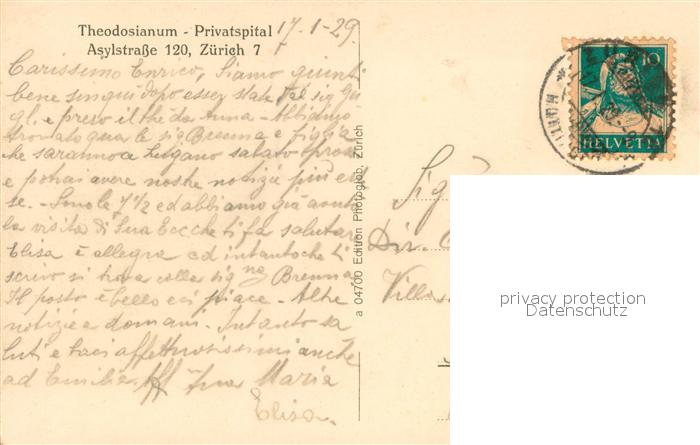 Theodosianum - Privatspital
Asylstraße 120, Zürich 7
17-1-29
Carissimo Enrico, Siamo giunti
bene sin qui dopo esser state dal sig
e preso il thè da Anna - Abbiamo
trovato qua le sig Brenna e figlia
che saranno a Lugano sabato
e potrai avere nostre notizie più
se. - Sono le 7 1/2 ed abbiamo già avuto
la visita di Sua Ecc che ti fa salutare
Elisa è allegra ed intanto che ti
scrivo si trova colla sigⁿᵃ Brenna
Il posto è bello e ci piace - Altre
notizie a domani. Intanto sa
luti e baci affettuosissimi anche
ad Emilia. aff tua Maria
Elisa.
a 04700 Edition Photoglob, Zürich
10
HELVETIA
Dir.
Villa
privacy protection
Datenschutz